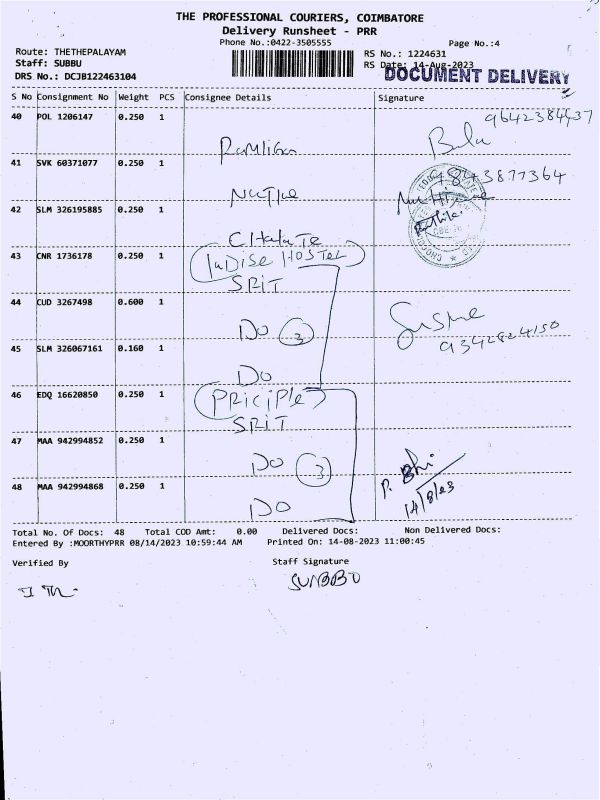 THE PROFESSIONAL COURIERS, COIMBATORE
Delivery Runsheet - PRR
Phone No.:0422-3505555
Page No.:4
Route: THETHEPALAYAM
RS No.: 1224631
Staff: SUBBU
RS Date: 14-Aug-2023
DOCUMENT DELIVERY
DRS No.: DCJB122463104
S No Consignment No Weight PCS Consignee Details Signature
40 POL 1206147 0.250 1
41 SVK 60371077 0.250 1
9843877364
42 SLM 326195885 0.250 1
43 CNR 1736178 0.250 1
HOSTEL
SRiT
44 CUD 3267498 0.600 1
DO 3
9342824150
45 SLM 326067161 0.160 1
DO
46 EDQ 16620850 0.250 1
PRiCiPle
SRiT
47 MAA 942994852 0.250 1
DO 3
48 MAA 942994868 0.250 1
14/8/23
DO
Total No. Of Docs: 48 Total COD Amt: 0.00 Delivered Docs: Non Delivered Docs:
Entered By :MOORTHYPRR 08/14/2023 10:59:44 AM Printed On: 14-08-2023 11:00:45
Verified By Staff Signature
SUBBU